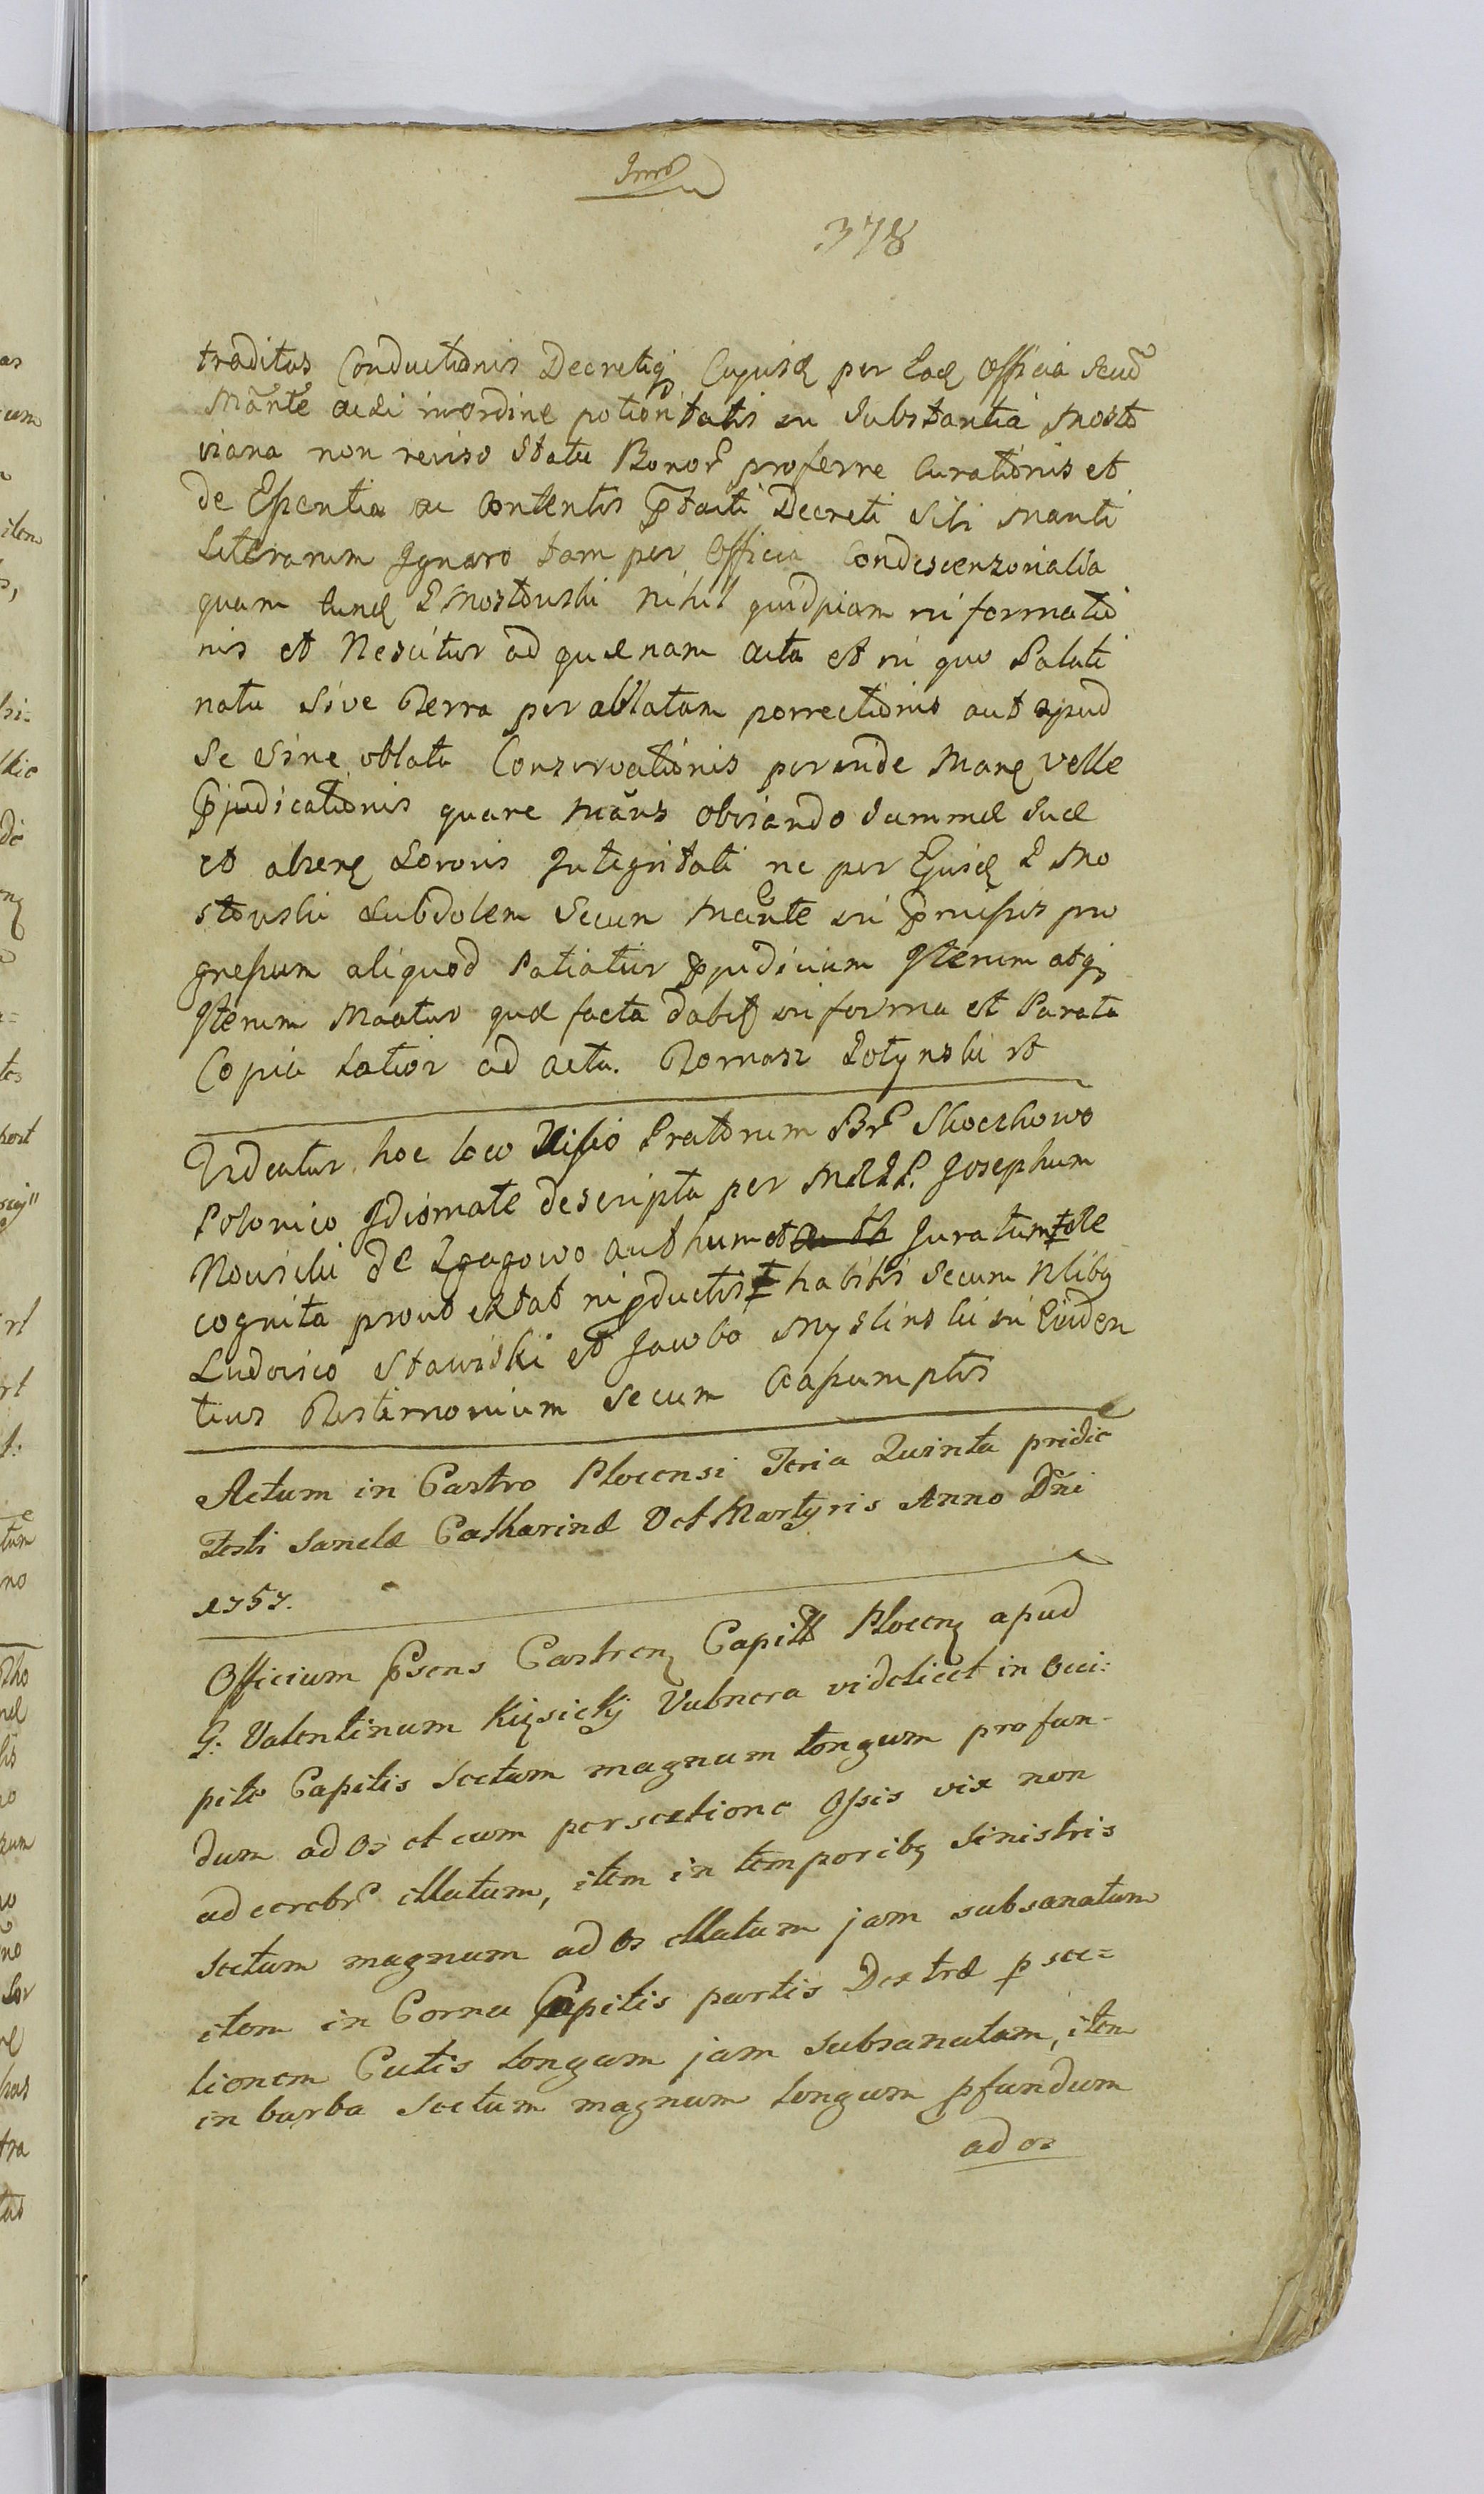 378
traditus Conductionis Decretiq Cujusq per Eaq Officia Secud
Mante acdi in ordine potioritatis in Substantia Mosto
viana non reviso Statu Bonor proferre Curationis et
de Essentia ac Contentis Decreti Sibi Manti
Literarum Ignaro tam per Officia Condescenzorialia
quam tunq Mostowski nihil quidpiam informatio
nis et Nescitur ad quænam acta et in quo Palati
natu Sive Terra per oblatam porrectionis aut apud
Se Sine oblata Conservationis perinde velle
judicationis quare Mans obviando Summæ Suæ
et absenq Sororis Integritati ne per Ejusq Mo
stowski Subdolem Secum Mante in præmissis pro
gressum aliquod Patiatur judicium Iterum atq
Iterum Maatur quæ facta dabit in forma et Parata
Copia Latior ad acta. Tomasz Lotynski
hoc loco Visio Pratorum Br Skoczkowo
Polonico Idiomate descripta per Josephum
Nowiski de authum et Juratum
cognita prout extat in pductis habitis Secum Nlibq
Ludovico Stawiski et Jacobo Myslinski in Eviden
tius Testimonium Secum assumptis
Actum in Castro Plocensi Feria Quinta pridie
Festi Sanctæ Catharinæ V et Martyris Anno Dni
1757.
Officium psens Castrenq Capitl Plocenq apud
G. Valentinum Kięsicky Vulnera videlicet in Occi:
pite Capitis Sectum magnum longum profun-
dum ad os et cum persectione Ossis vix non
ad cerebr illatum, item in temporibq Sinistris
Sectum magnum ad os illatum jam subsanatum
item in Cornu Capitis partis Dextræ p sec=
tionem Cutis longam jam subsanatam, item
in barba Sectum magnum longum pfundum
ad os